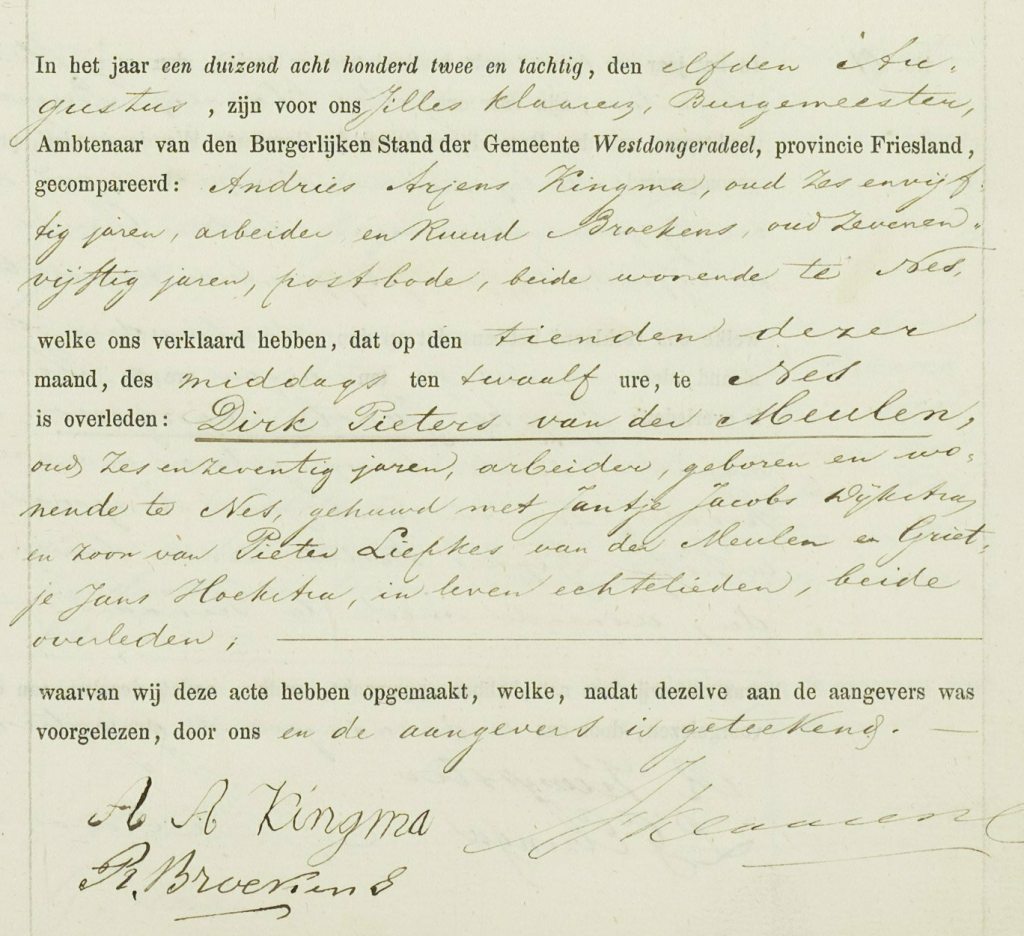 In het jaar een duizend acht honderd twee en tachtig, den elfden Au-
gustus, zijn voor ons Jilles Klaarenz, Burgemeester,
Ambtenaar van den Burgerlijken Stand der Gemeente Westdongeradeel, provincie Friesland,
gecompareerd: Andries Arjens Kingma, oud zes en vijf-
tig jaren, arbeider en Ruurd Broekens, oud zeven en
vijftig jaren, postbode, beide wonende te Nes,
welke ons verklaard hebben, dat op den tienden dezer
maand, des middags ten twaalf ure, te Nes
is overleden: Dirk Pieters van der Meulen,
oud zes en zeventig jaren, arbeider, geboren en wo-
nende te Nes, gehuwd met Jantje Jacobs Dijkstra,
en zoon van Pieter Liepkes van der Meulen en Griet-
je Jans Hoekstra, in leven echtelieden, beide
overleden;
waarvan wij deze acte hebben opgemaakt, welke, nadat dezelve aan de aangevers was
voorgelezen, door ons en de aangevers is geteekend. —
A A Kingma
R. Broekens